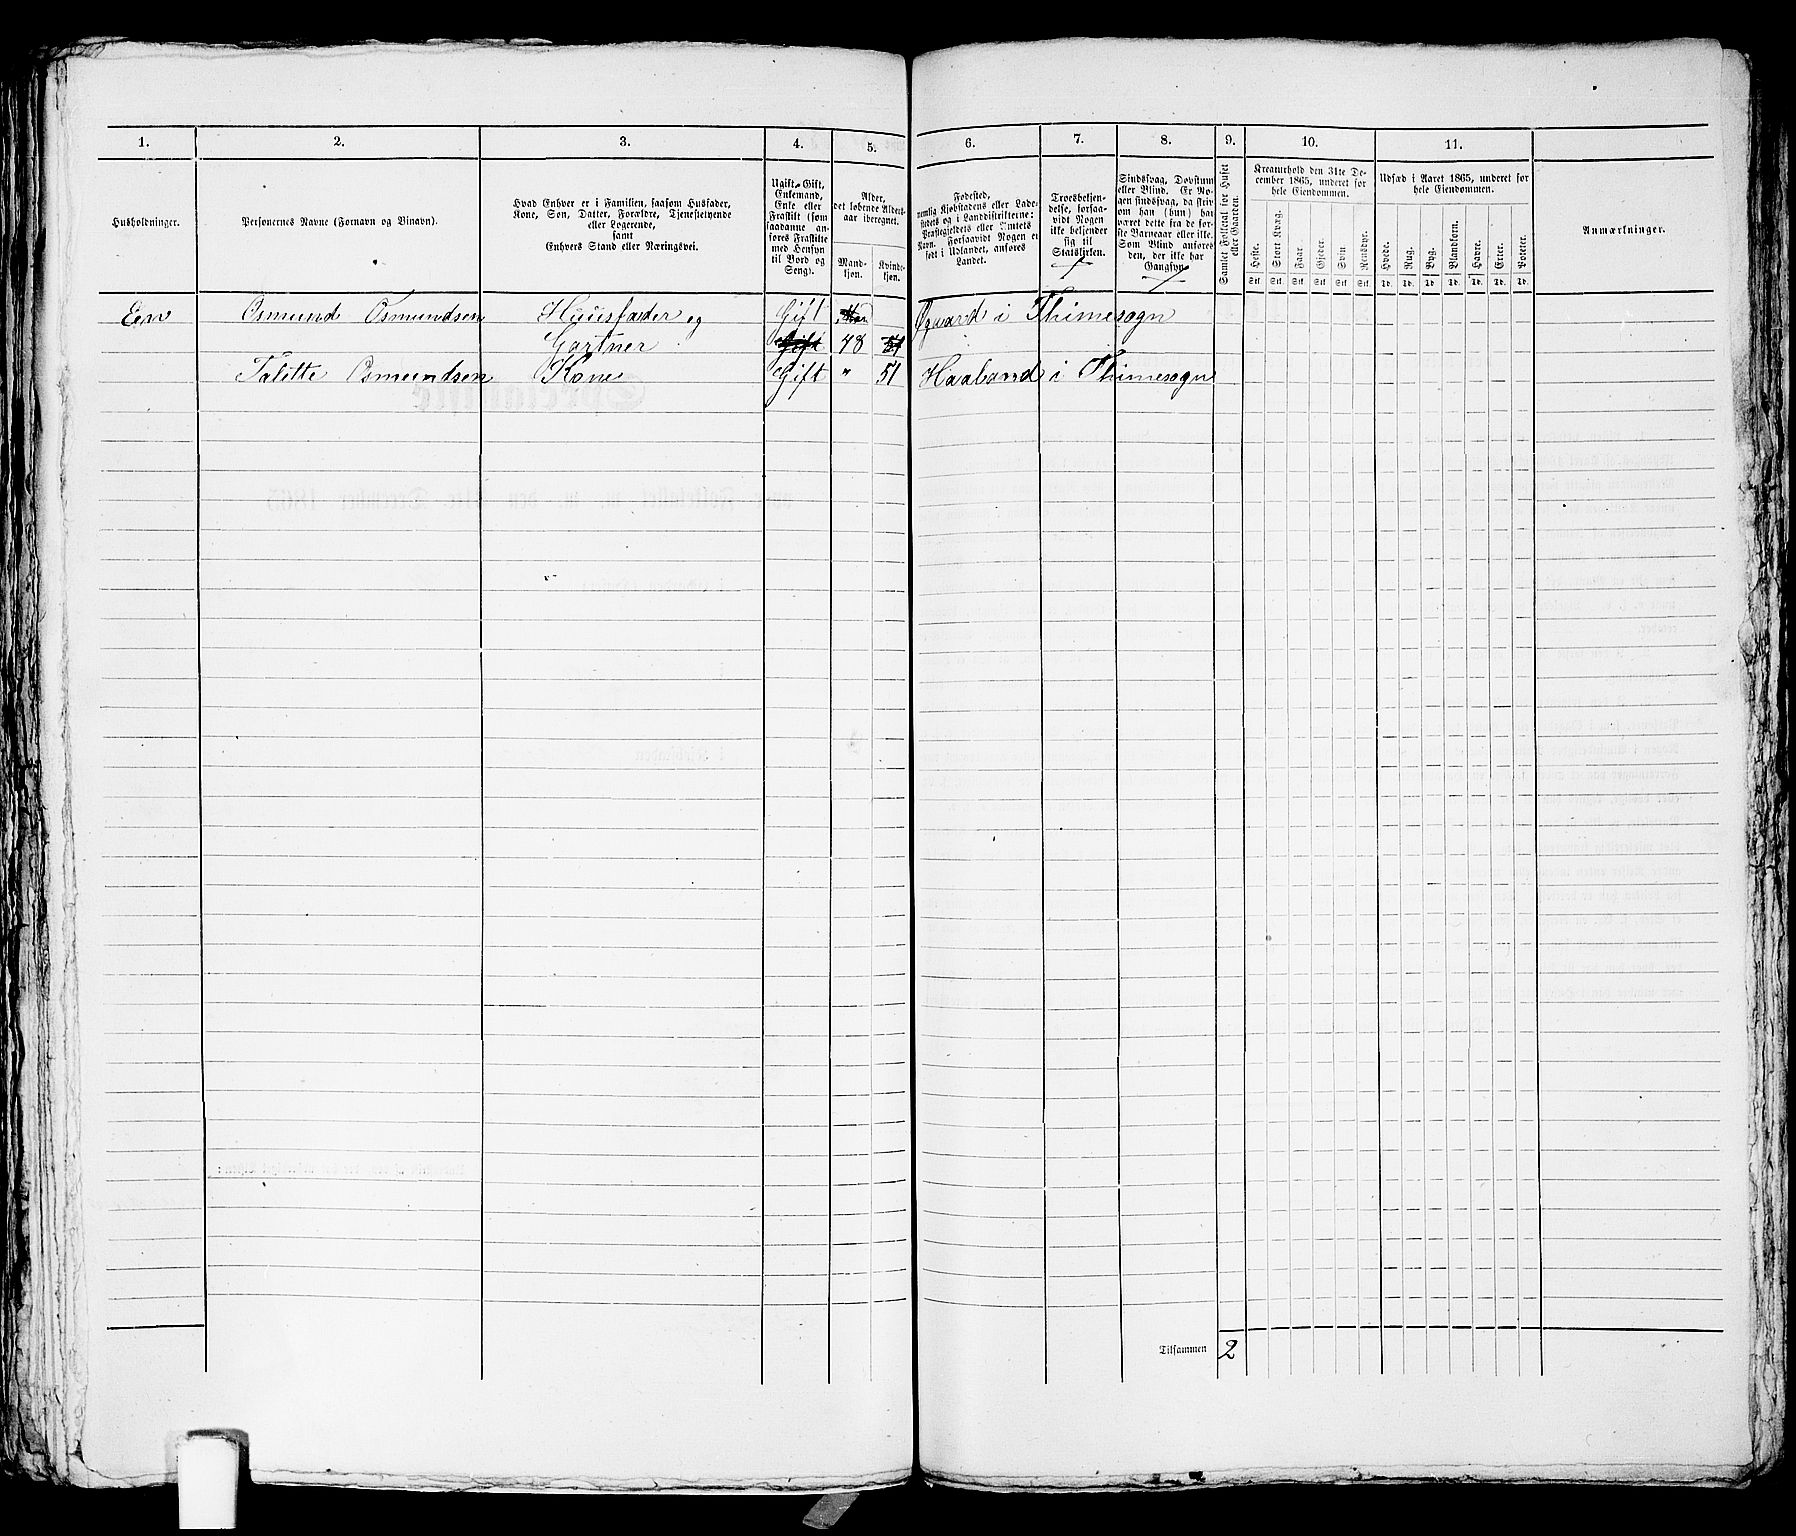 1.
2.
3.
4.
5.
6.
7.
8.
9.
10.
11.
Husholdninger.
Personernes Navne (Fornavn og Binavn).
Hvad Enhver er i Familien, saasom Husfader,
Kone, Søn, Datter, Forældre, Tjenestetyende
eller Logerende,
samt
Enhvers Stand eller Næringsvei.
Ugift, Gift,
Enkemand,
Enke eller
Fraskilt (som
saadanne an-
føres Fraskilte
med Hensyn
til Bord og
Seng).
Alder,
det løbende Alders-
aar iberegnet.
Mand-
kjøn.
Kvinde-
kjøn.
Fødested,
nemlig Kjøbstadens eller Lade-
stedets og i Landdistrikterne:
Præstegjeldets eller Amtets
Navn. Forsaavidt Nogen er
født i Udlandet, anføres
Landet.
Troesbekjen-
delse, forsaa-
vidt Nogen
ikke bekjender
sig til
Statskirken.
Sindssvag, Døvstum
eller Blind. Er No-
gen sindssvag, da skriv
om han (hun) har
været dette fra de før-
ste Barneaar eller ikke.
Som Blind anføres
den, der ikke har
Gangsyn.
Samlet Folketal for Huset
eller Gaarden.
Kreaturhold den 31te De-
cember 1865, underet for
hele Eiendommen.
Heste.
Stort Kvæg.
Faar.
Gjeder.
Svin.
Rensdyr.
Stk. Stk. Stk. Stk. Stk. Stk.
Udsæd i Aaret 1865, underet for
hele Eiendommen.
Hvede.
Rug.
Byg.
Blandkorn.
Havre.
Erter.
Poteter.
Td. Td. Td. Td. Td. Td. Td.
Anmærkninger.
Een Osmund Osmundsen Huusfader og Gift Øgaard i Thimesogn
Gartner Gift 48 51
Talette Osmundsen Kone Gift " 51 Haaland i Thimesogn
Tilsammen 2